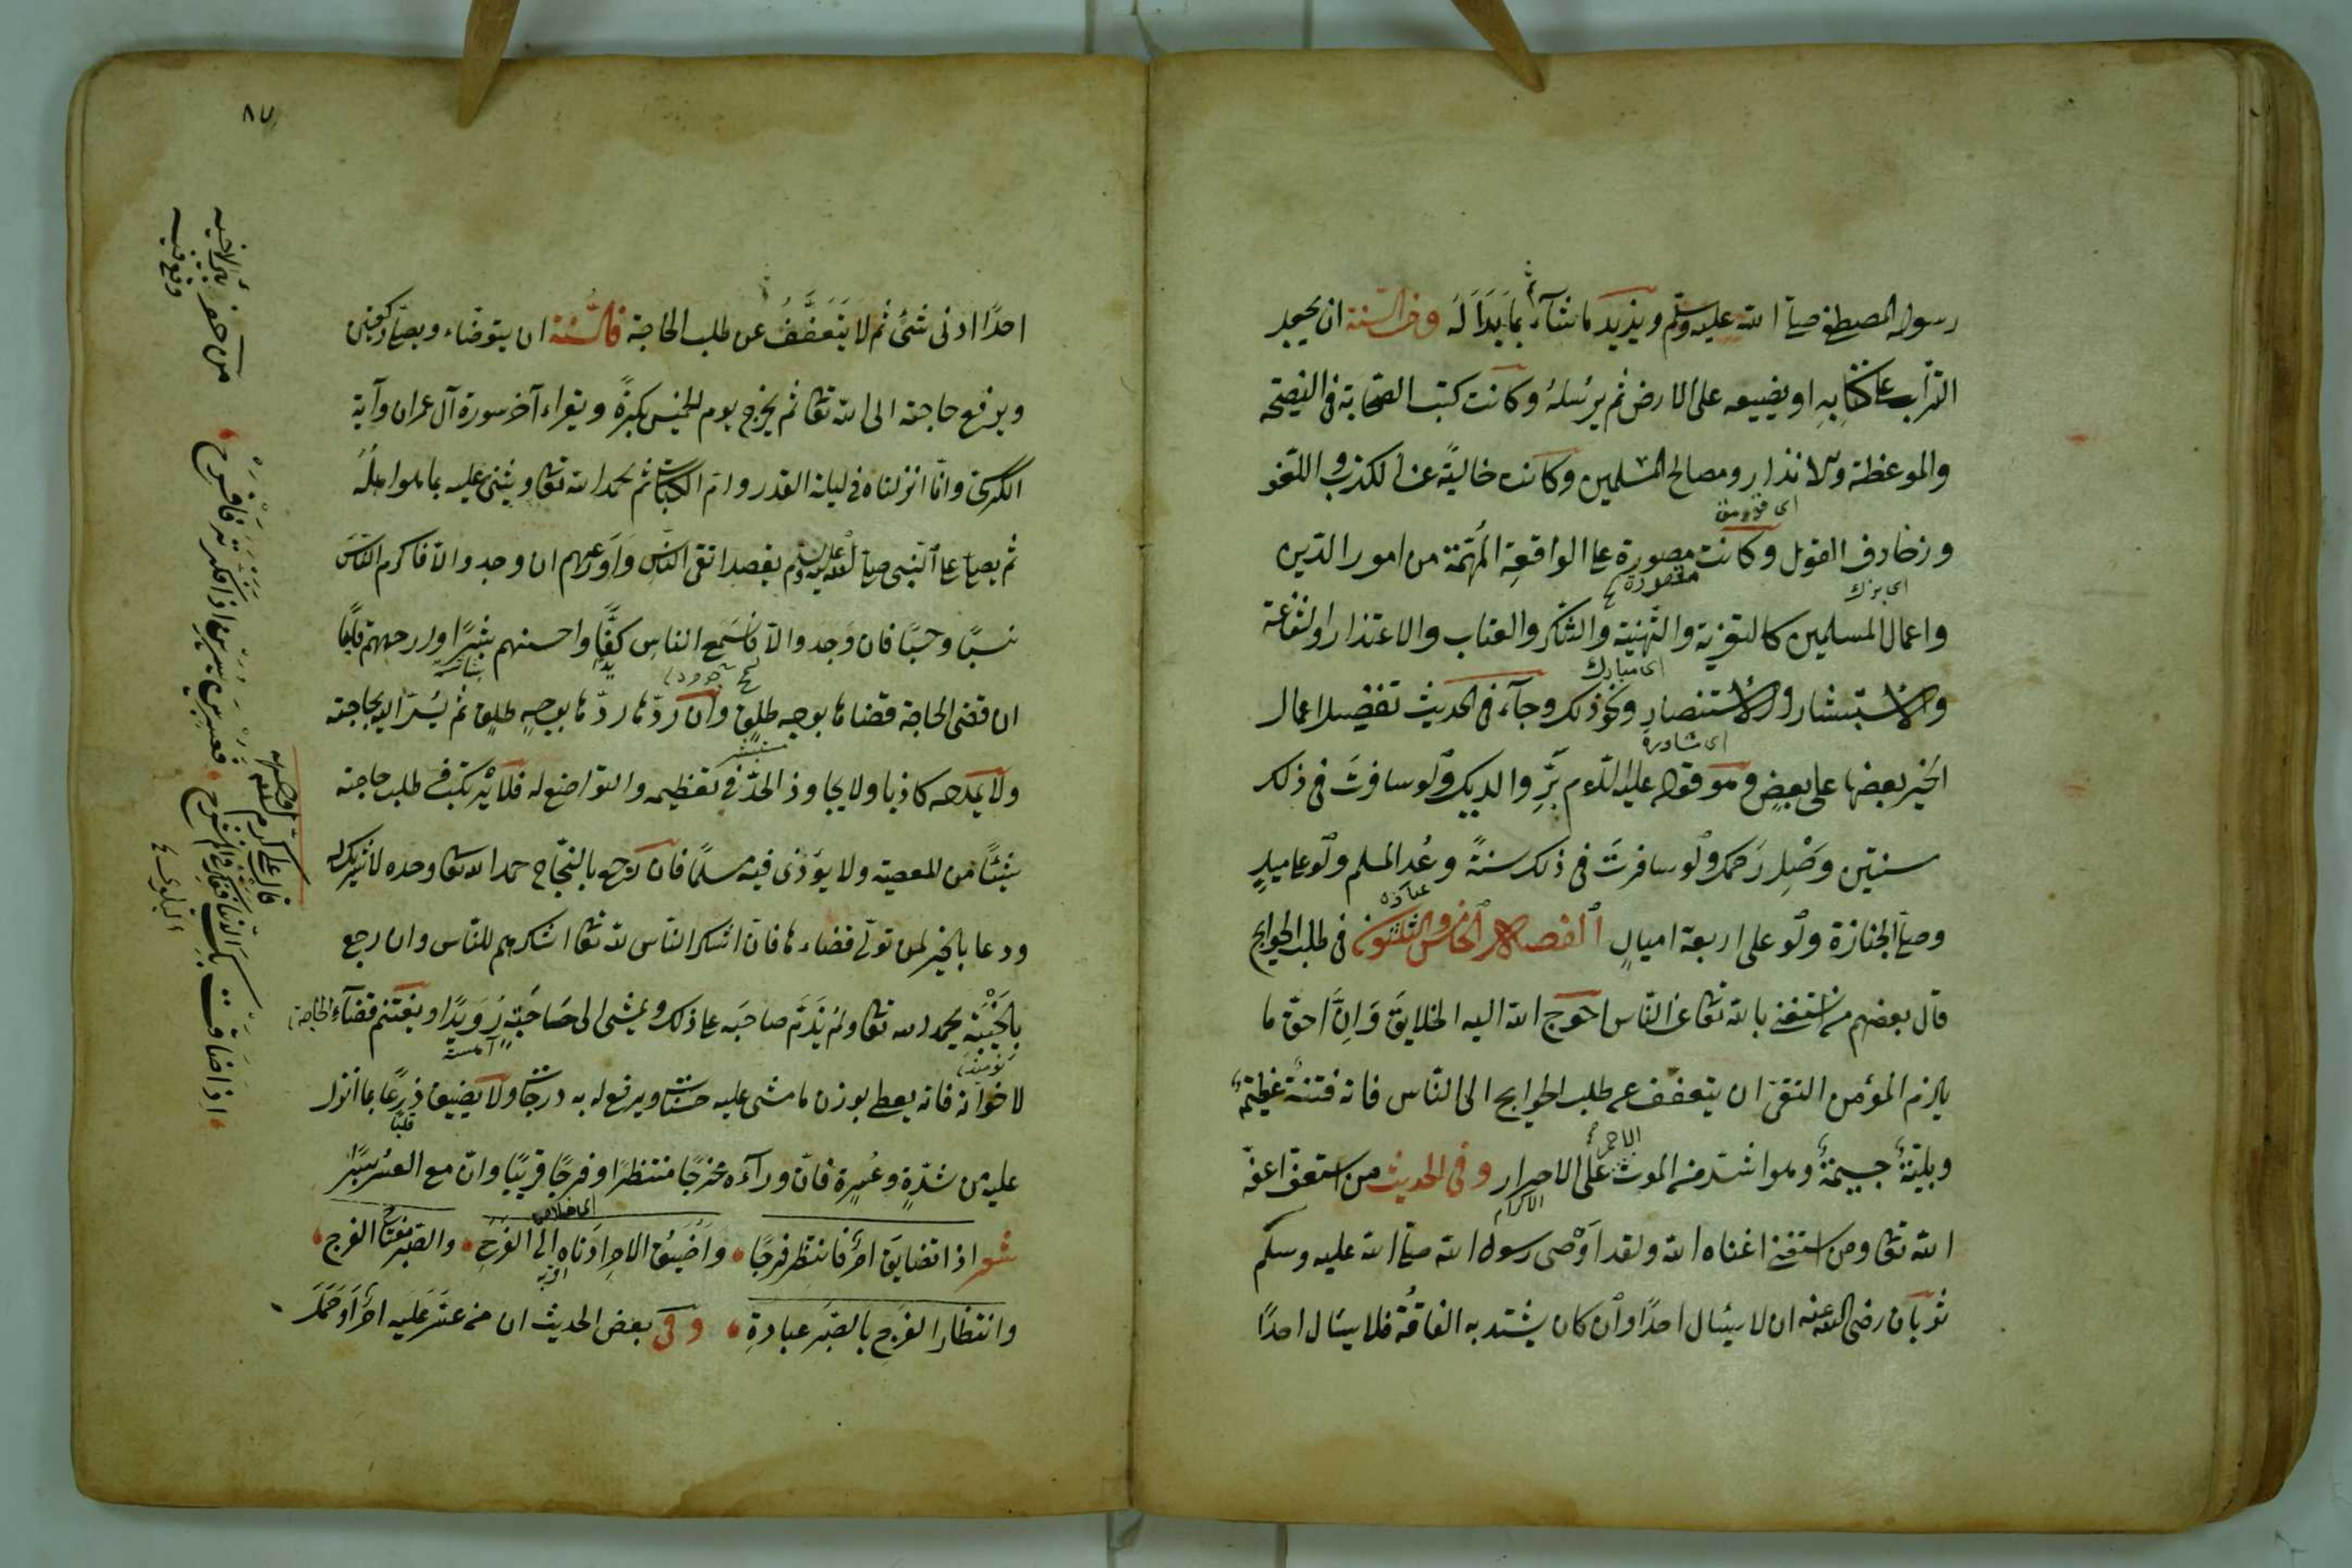 رسوله المصطفى صلى الله عليه وسلم ويزيد ما شآء بما بدا له ومن السنة ان يجعل
التراب على كتابه او يضعه على الارض ثم يرسله وكانت كتب الصحابة في النصيحة
والموعظة والانذار ومصالح المسلمين وكانت خالية عن الكذب واللغو
وزخارف القول وكانت مصورة على الواقعة المهمة من امور الدين
مقصورة
واعمال المسلمين كالتعزية والتهنية والشكر والعتاب والاعتذار او الشفاعة
والاستبشار والاستنصار ونحو ذلك وجآء في الحديث تفضيل اعمال
الخير بعضها على بعض وهو قوله عليه السلام بر والديك ولو سافرت في ذلك
سنتين وصل رحمك ولو سافرت في ذلك سنة وعد المسلم ولو على ميل
وصل الجنازة ولو على اربعة اميال الفصل الخامس والثلثون في طلب الحوايج
قال بعضهم من استغنى بالله تعالى عن الناس احوج الله اليه الخلايق وان احق ما
يلزم المؤمن التقى ان يتعفف عن طلب الحوايج الى الناس فانه فتنة عظيمة
وبلية جسيمة وهو اشد من الموت على الاحرار وفي الحديث من استعف اعفه
الله تعالى ومن استغنى اغناه الله ولقد اوصى رسول الله صلى الله عليه وسلم
ثوبان رضى الله عنه ان لا يسئال احدا وان كان يشتد به الفاقة فلا يسئال احدا
٨٧
احدا ادنى شئ ثم لا يتعفف عن طلب الحاجة فالسنة ان يتوضاء ويصلى ركعتين
ويرفع حاجته الى الله تعالى ثم يخرج يوم الخميس بكرة ويقراء آخر سورة آل عمران وآية
الكرسى وانا انزلناه في ليلة القدر وام الكتاب ثم يحمد الله تعالى ويثنى عليه بما هو اهله
ثم يصلى على النبى صلى الله عليه وسلم يقصد اتقى الناس واورعهم ان وجد والا فاكرم الناس
نسبا وحسبا فان وجد والا فاسمح الناس كفا واحسنهم بشرا وارحمهم قلبا
ان قضى الحاجة قضاها بوجه طلق وان ردها ردها بوجه طلق ثم يسر اليه بحاجته
ولا يمدحه كاذبا ولا يجاوز الحد في تعظيمه والتواضع له فلا يرتكب في طلب حاجته
شيئا من المعصية ولا يؤذى فيه مسلما فان رجع بالنجاح حمد الله تعالى وحده لا شريك له
ودعا بالخير لمن تولى قضاءها فان اشكر الناس لله تعالى اشكرهم للناس وان رجع
بالخيبة يحمد الله تعالى ولم يذم صاحبه على ذلك ويمشى الى صاحبته رويدا ويغتنم قضآء الحاجة
لاخوانه فانه يعطى بوزن ما مشى عليه حسنات ويرفع له به درجات ولا يضيق ذرعا بما انزل
عليه من شدة وعسرة فان ورآءه مخرجا منتظرا وفرجا قريبا وان مع العسر يسرا
شعر اذا تضايق امر فانتظر فرجا واضيق الامر ادناه الى الفرج والصبر مفتاح الفرج
وانتظار الفرج بالصبر عبادة وفي بعض الحديث ان من عسر عليه امر او حمل
اذا ضاقت بك الدنيا ففكر في الم نشرح فعسر بين يسرين اذا فكرته فافرح
من حفر بئرا لاخيه
وقع فيه